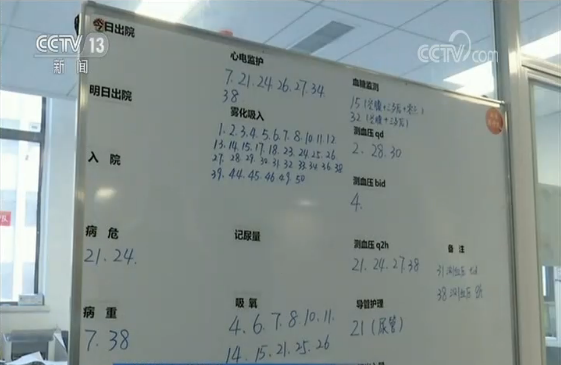 CCTV 13
新闻
CCTV.com
今日出院
心电监护
7.21.24.26.27.34
38
血糖监测
明日出院
雾化吸入
1.2.3.4.5.6.7.8.10.11.12
13.14.15.17.18.23.24.25.26
27.28.29.30.31.32.33.34.36.38
39.44.45.46.49.50
测血压 qd
2.28.30
入院
测血压 bid
4.
病危
21.24.
记尿量
测血压 q2h
21.24.27.38
备注
31 测血压 tid
38 测血压 q8h
病重
7.38
吸氧
4.6.7.8.10.11.
14.15.21.25.26
导管护理
21(尿管)